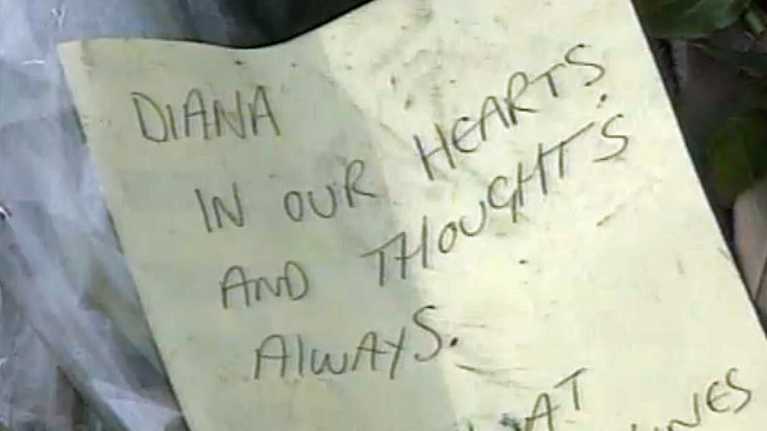 DIANA
IN OUR HEARTS
AND THOUGHTS
AlWAYS.
AT